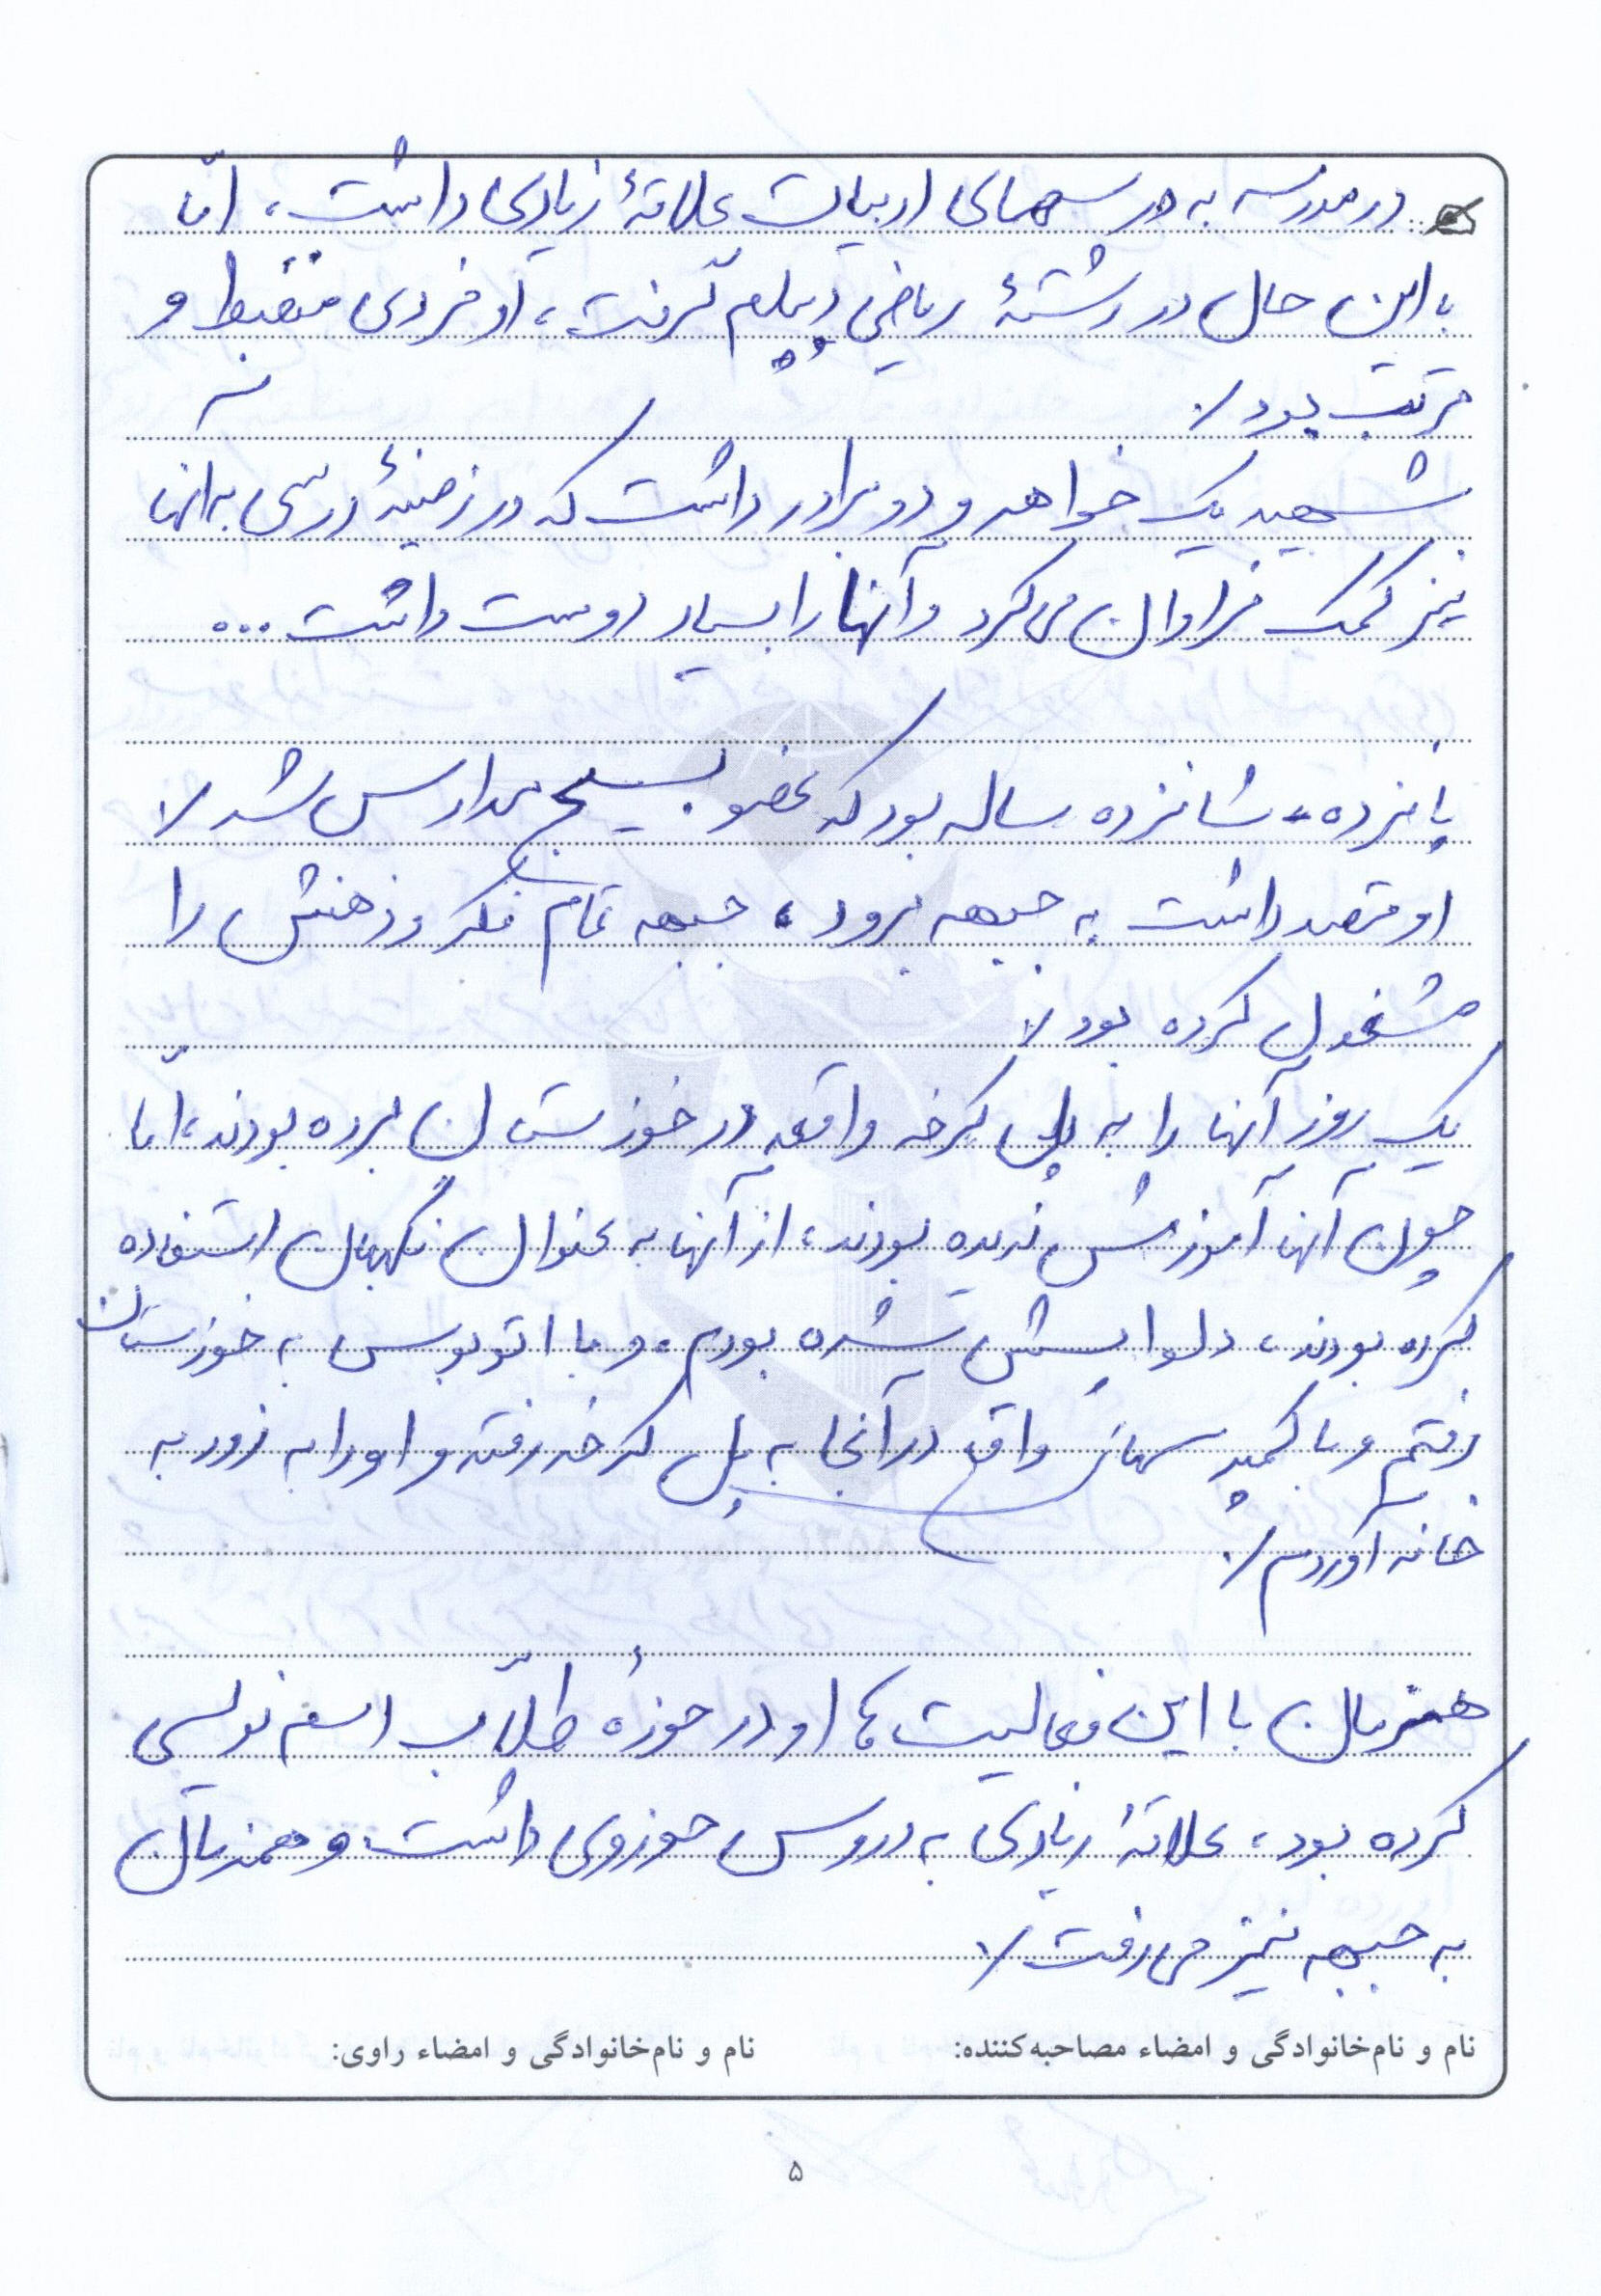 در مدرسه به درسهای ادبیات علاقهٔ زیادی داشت، امّا
با این حال در رشتهٔ ریاضی دیپلم گرفت، او فردی منضبط و
مرتب بود.
شهید یک خواهر و دو برادر داشت که در زمینهٔ درسی به آنها
نیز کمک فراوان می کرد و آنها را بسیار دوست داشت...
پانزده، شانزده ساله بود که عضو بسیج مدارس شد.
او قصد داشت به جبهه برود، جبهه تمام فکر و ذهنش را
مشغول کرده بود.
یک روز آنها را به پل کرخه واقعه در خوزستان برده بودند، امّا
چون آنها آموزش ندیده بودند، از آنها به عنوان نگهبان استفاده
کرده بودند، دلواپسش شده بودم، و با اتوبوس به خوزستان
رفتم و با کمپرسی واقع در آنجا به پل کرخه رفته و او را به زور به
خانه آوردم.
همزمان با این فعالیت ها او در حوزهٔ طلّاب اسم نویسی
کرده بود، علاقهٔ زیادی به دروس حوزوی داشت و همزمان
به جبهه نیز می رفت.
نام و نام‌خانوادگی و امضاء مصاحبه‌کننده: نام و نام‌خانوادگی و امضاء راوی:
۵